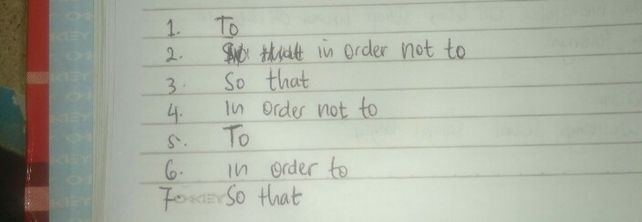 1. To
2. in order not to
3. So that
4. In order not to
5. To
6. in order to
7. So that